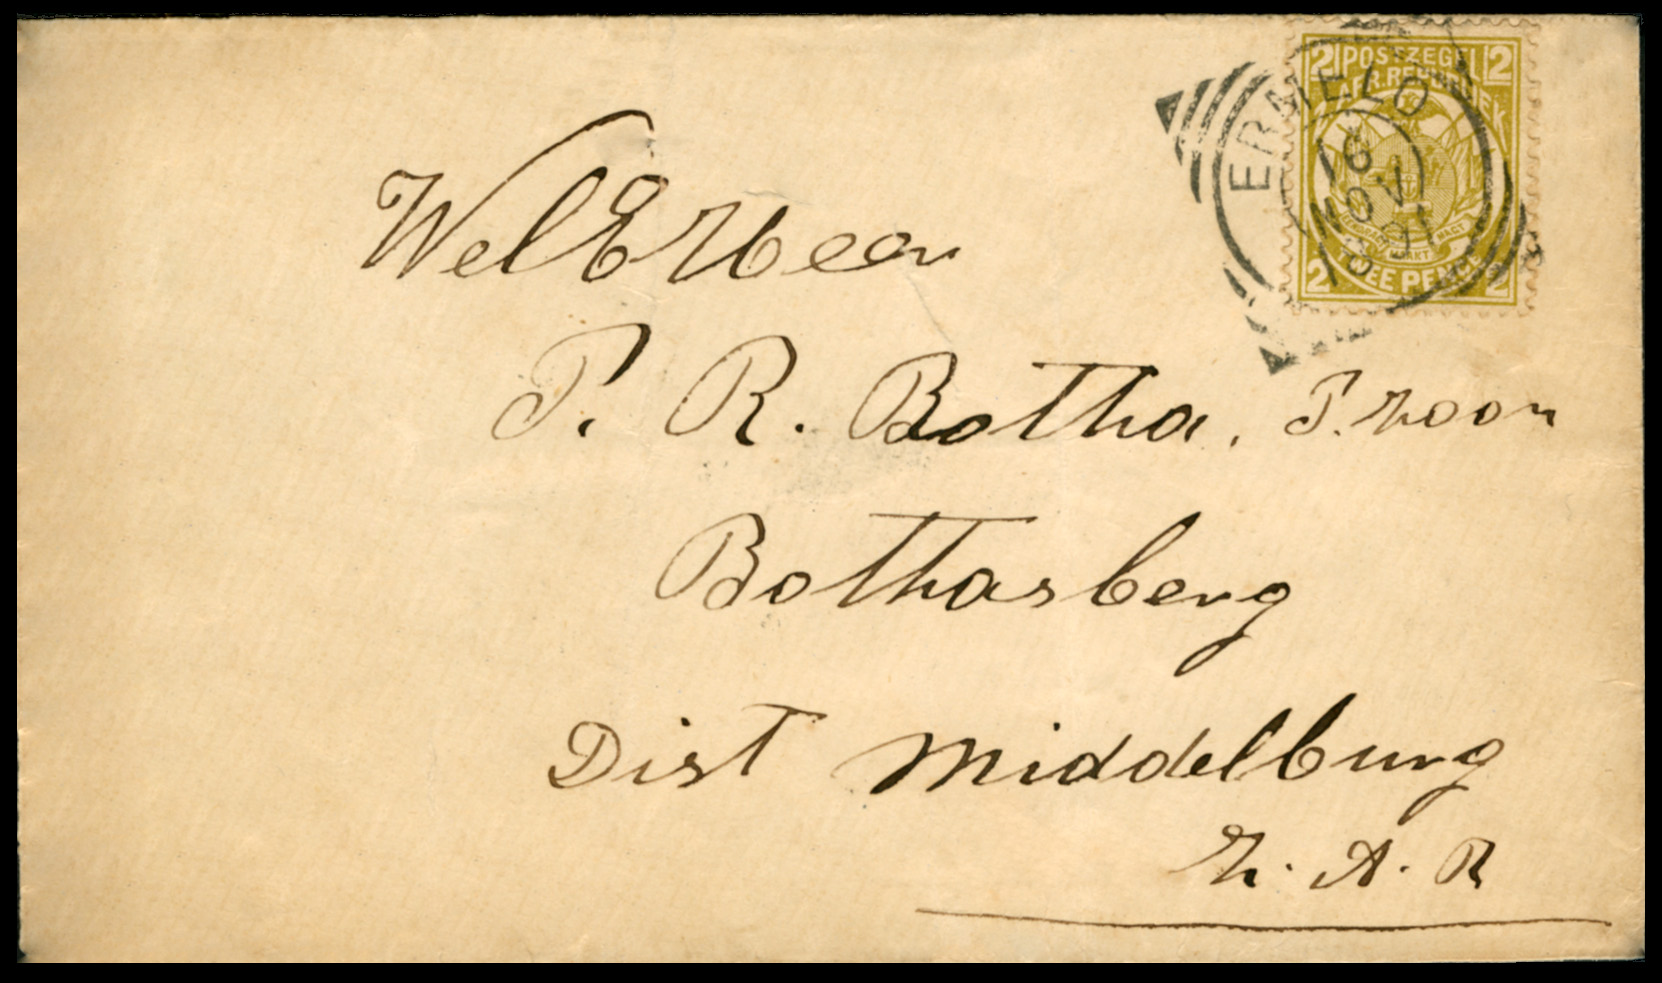 2 POSTZEGEL 2
Z.AFR.REPUBLIEK
EENDRAGT MAAKT MAGT
2 TWEE PENCE 2
ERMELO
16
NOV
1891
WelE Heer
P. R. Botha, P.zoon
Bothasberg
Dist Middelburg
Z. A. R